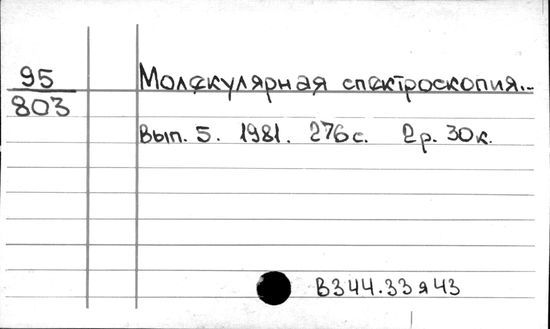 95
803
Молекулярная спектроскопия...
Вып. 5. 1981. 276с. 2р. 30к.
В344.33я43